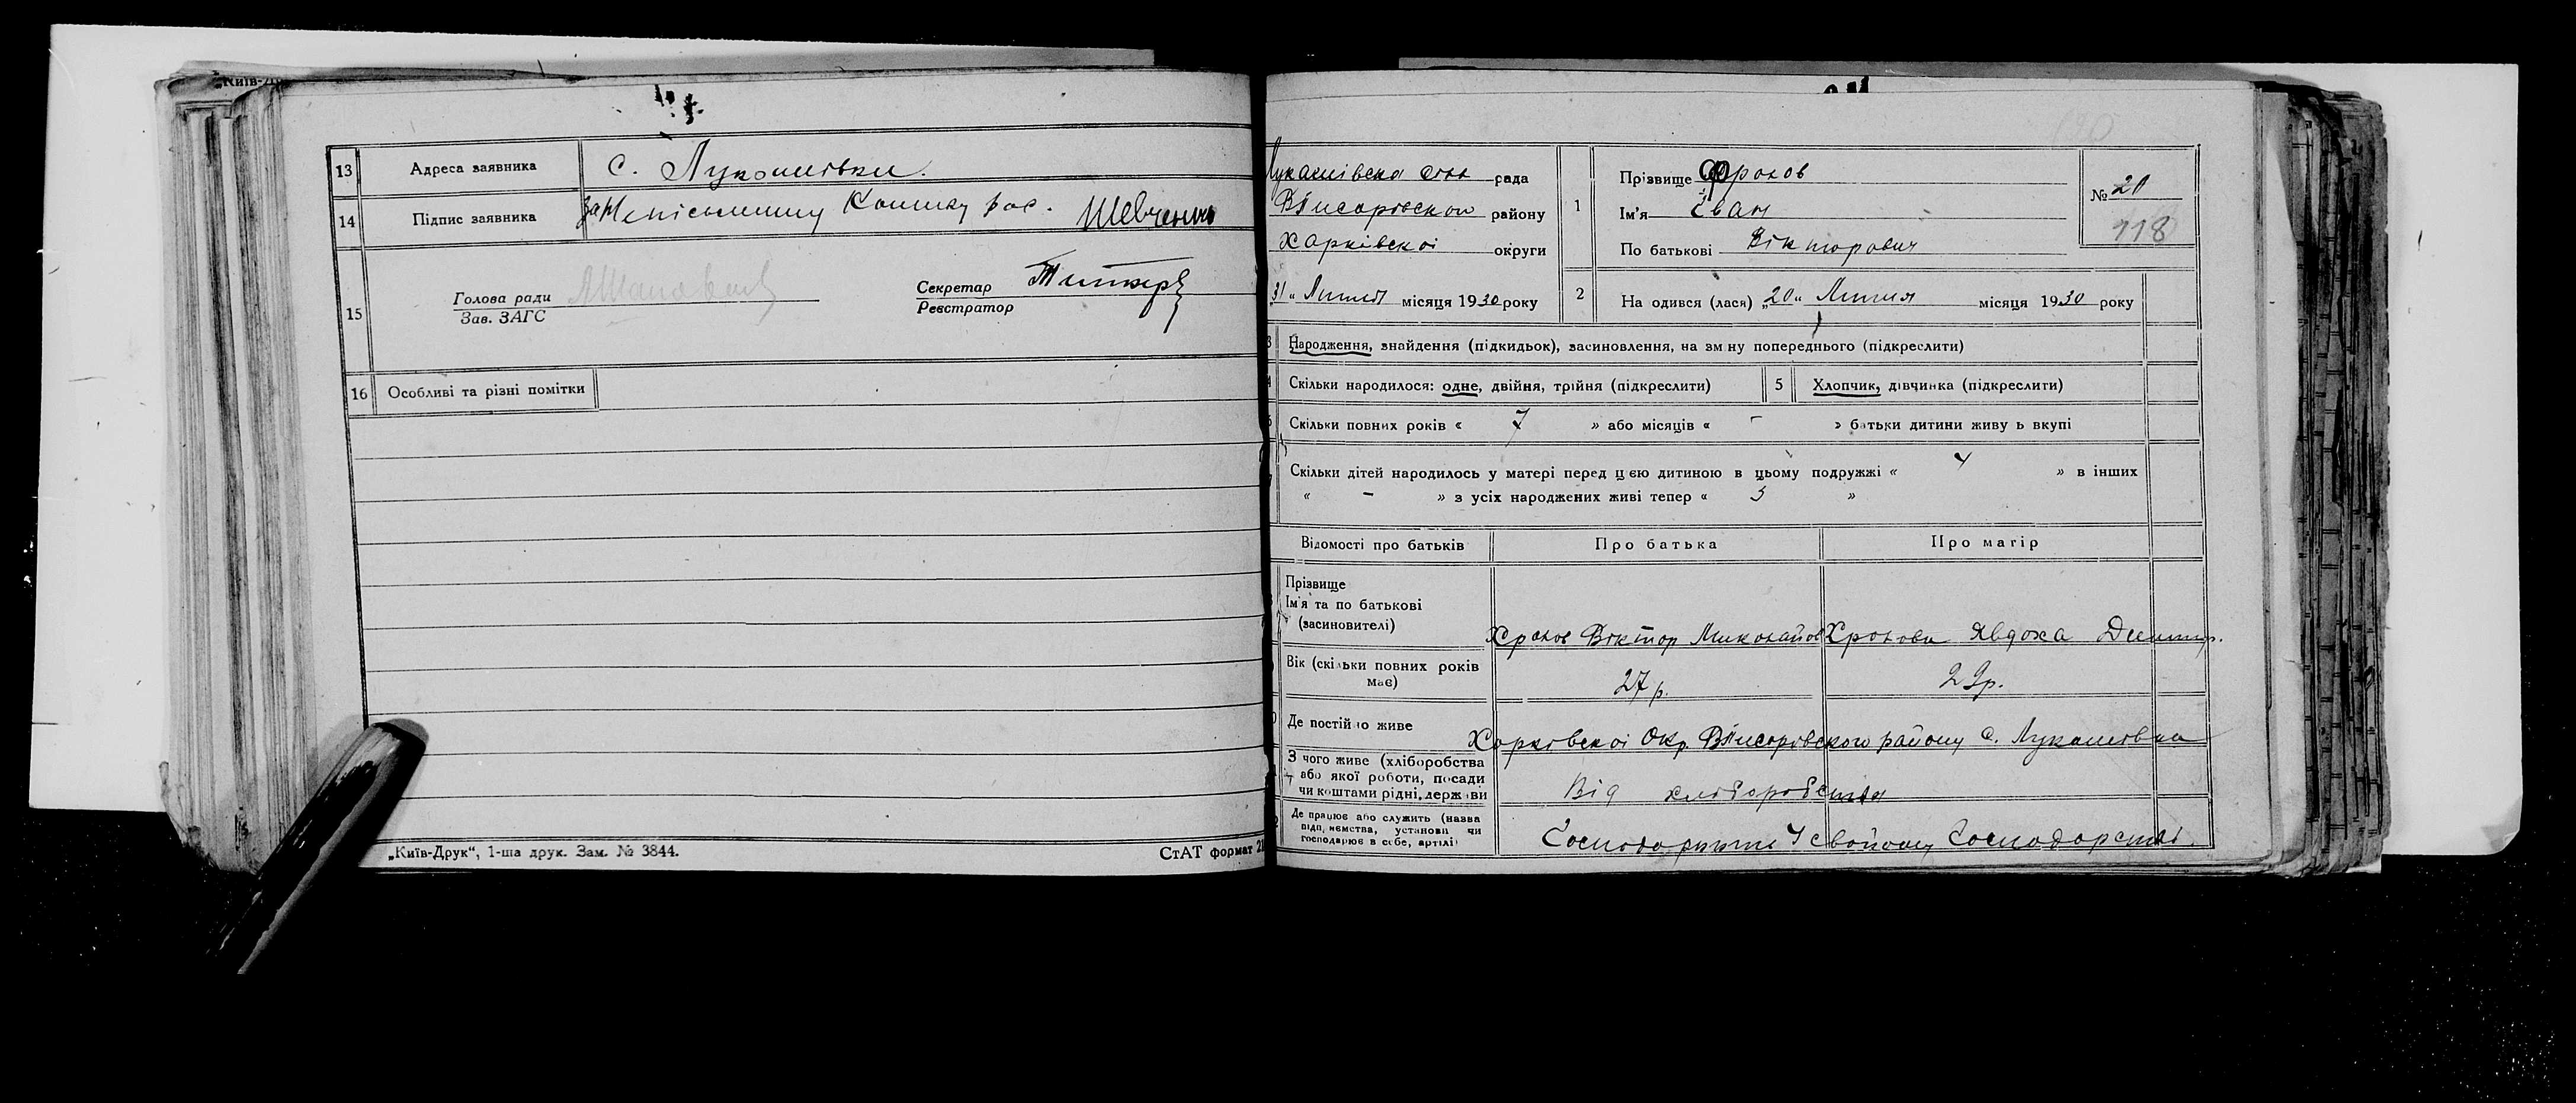 „Київ-Д
13 Адреса заявника с. Лукашівки.
14 Підпис заявника за Неписьменну рос. Шевченко
15 Голова ради Секретар
Зав. ЗАГС Реєстратор
16 Особливі та різні помітки
„Київ-Друк“, 1-ша друк. Зам. № 3844. СтАТ формат
Лукашівсько рада
району
Харківскоі округи
31 „ Липня місяця 1930 року
1 Прізвище Фролов
Ім'я Іван
По батькові Вікторович
№ 20
118
2 На одився (лася) „20 „ Липня місяця 1930 року
Народження, знайдення (підкидьок), засиновлення, на зм ну попереднього (підкреслити)
Скільки народилося: одне, двійня, трійня (підкреслити) 5 Хлопчик, дівчинка (підкреслити)
Скільки повних років « 7 » або місяців « - » батьки дитини живу ь вкупі
Скільки дітей народилось у матері перед цією дитиною в цьому подружжі « 4 » в інших
« - » з усіх народжених живі тепер « 3 »
Відомості про батьків Про батька Про матір
Прізвище
Ім'я та по батькові
(засиновителі) Хролов Віктор Миколайов Хролова Явдоха Дмитр.
Вік (скільки повних років
має) 27 р. 29р.
Де постійно живе Харківскоі Окр. району С. Лукашівка
З чого живе (хліборобства
або якої роботи, посади
чи коштами рідні, держави Від хліборобства
Де працює або служить (назва
підп, иємства, установи чи
господарює в себе, артілі) У свойому Господарстві.